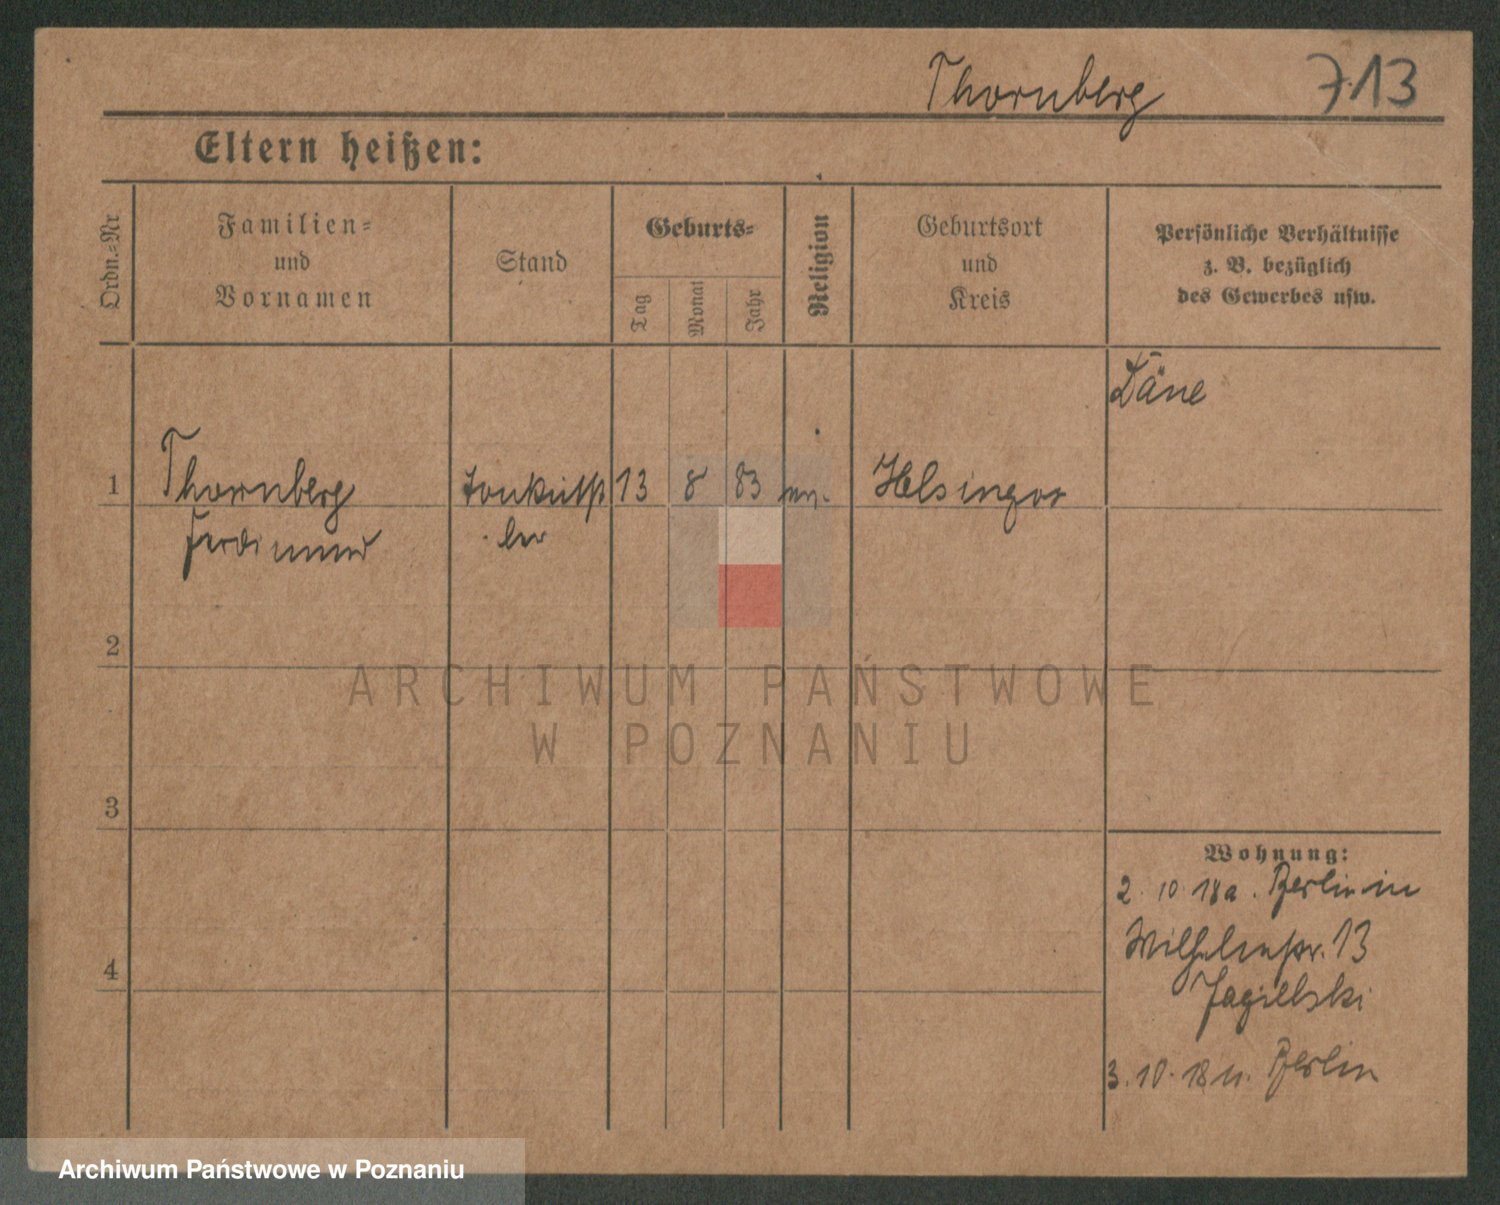 Thornberg 713
Eltern heißen:
Ordn.-Nr
Familien-
und
Vornamen
Stand
Geburts-
Tag
Monat
Jahr
Religion
Geburtsort
und
Kreis
Persönliche Verhältnisse
z. B. bezüglich
des Gewerbes usw.
Däne
1 Thornberg 13 8 83 Helsingör
2
ARCHIWUM PAŃSTWOWE
W POZNANIU
3
Wohnung:
2. 10. 18 a. Berlin in
Wilhelmstr. 13
4
Jagielski
3. 10. 18 n. Berlin
Archiwum Państwowe w Poznaniu